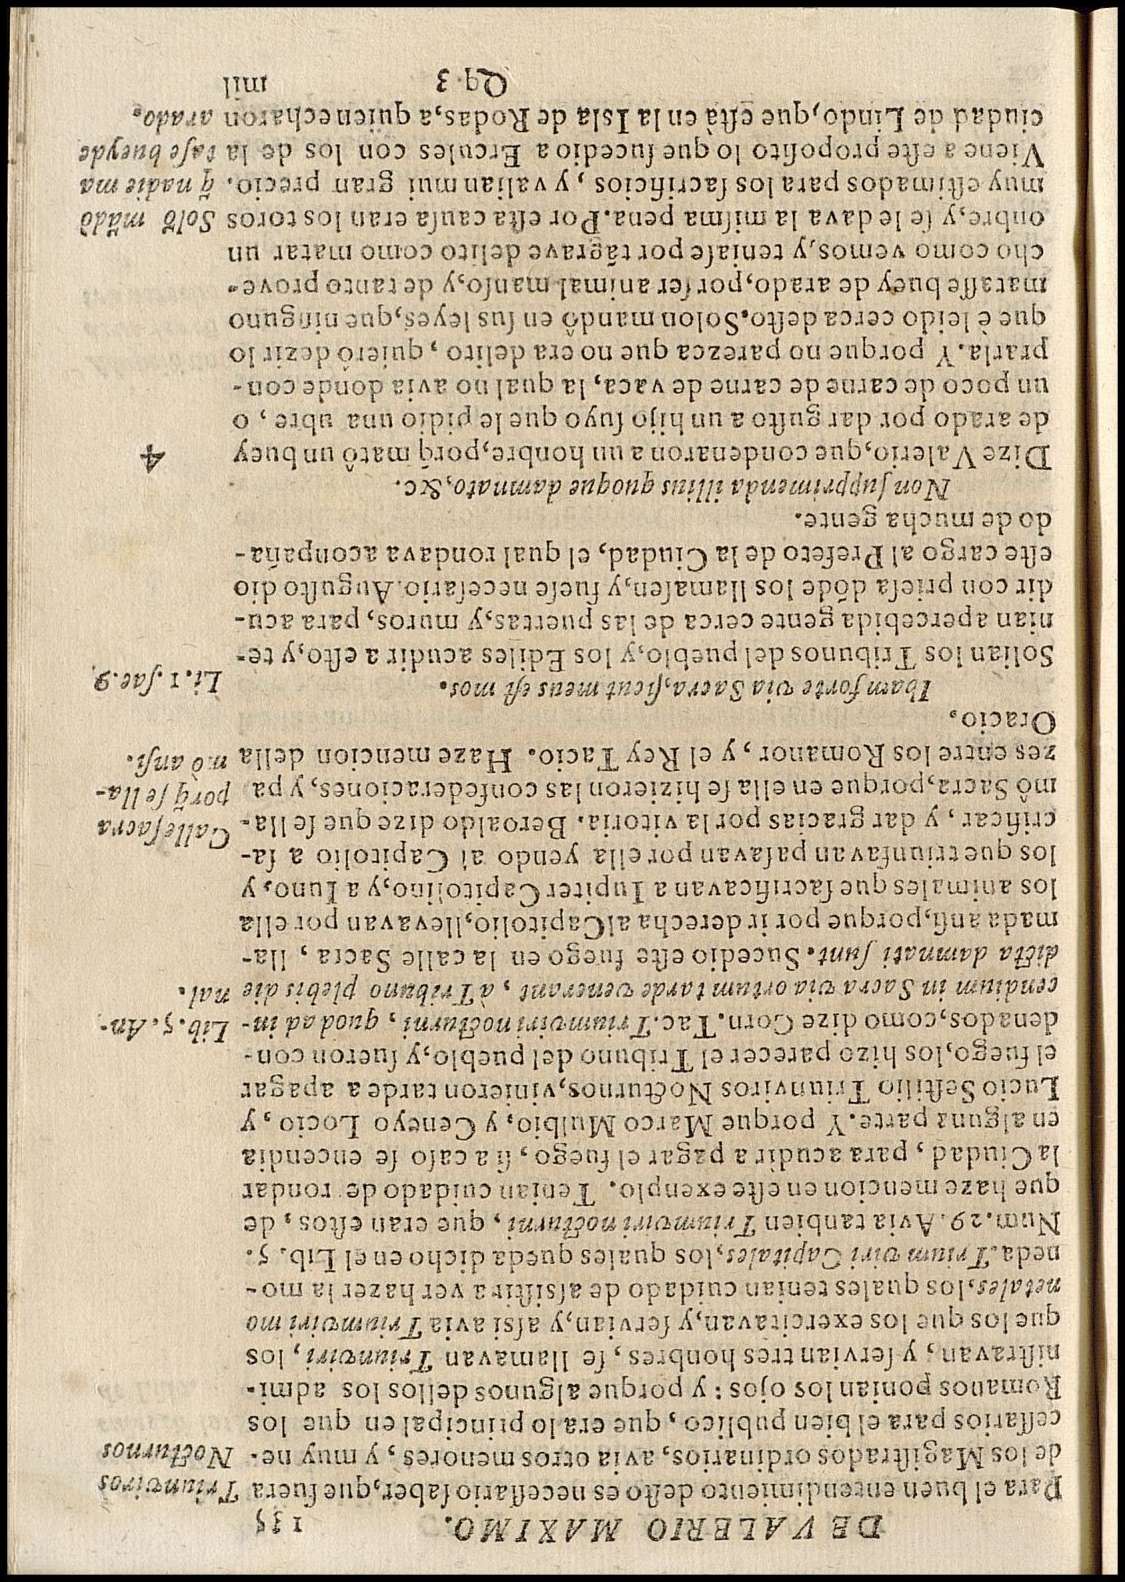 DE VALERIO MAXIMO. 135
Para el buen entendimiento desto es necessario saber, que fuera
de los Magistrados ordinarios, avia otros menores, y muy ne-
cessarios para el bien publico, que era lo principal en que los
Romanos ponian los ojos: y porque algunos dellos los admi-
nistravan, y servian tres honbres, se llamavan Triunviri, los
que los que los exercitavan, y servian, y assi avia Triumviri mo
netales, los quales tenian cuidado de assistir a ver hazer la mo-
neda. Trium viri Capitales, los quales queda dicho en el Lib. 5.
Num. 29. Avia tanbien Triumviri nocturni, que eran estos, de
que haze mencion en este exenplo. Tenian cuidado de rondar
la Ciudad, para acudir a pagar el fuego, si a caso se encendia
en alguna parte. Y porque Marco Mulbio, y Geneyo Locio, y
Lucio Sestilio Triunviros Nocturnos, vinieron tarde a apagar
el fuego, los hizo parecer el Tribuno del pueblo, y fueron con-
denados, como dize Corn. Tac. Triumviri nocturni, quod ad in-
cendium in Sacra via ortum tarde venerant, à Tribuno plebis die
dicta damnati sunt. Sucedio este fuego en la calle Sacra, lla-
mada ansi, porque por ir derecha al Capitolio, llevavan por ella
los animales que sacrificavan a Iupiter Capitolino, y a Iuno, y
los que triunfavan pasavan por ella yendo al Capitolio a sa-
crificar, y dar gracias por la vitoria. Beroaldo dize que se lla-
mô Sacra, porque en ella se hizieron las confederaciones, y pa
zes entre los Romanor, y el Rey Tacio. Haze mencion della
Oracio,
Ibam forte via Sacra, sicut meus est mos.
Solian los Tribunos del pueblo, y los Ediles acudir a esto, y te-
nian apercebida gente cerca de las puertas, y muros, para acu-
dir con priesa dõde los llamasen, y fuese necesario. Augusto dio
este cargo al Prefeto de la Ciudad, el qual rondava aconpaña-
do de mucha gente.
Non supprimenda illius quoque damnato, &c.
Dize Valerio, que condenaron a un honbre, porq̃ matô un buey
de arado por dar gusto a un hijo suyo que le pidio una ubre, o
un poco de carne de carne de vaca, la qual no avia donde con-
prarla. Y porque no parezca que no era delito, quiero dezir lo
que è leido cerca desto. Solon mandô en sus leyes, que ninguno
matasse buey de arado, por ser animal manso, y de tanto prove-
cho como vemos, y teniase por tã grave delito como matar un
onbre, y se le dava la misma pena. Por esta causa eran los toros
muy estimados para los sacrificios, y valian mui gran precio.
Viene a este proposito lo que sucedio a Ercules con los de la
ciudad de Lindo, que està en la Isla de Rodas, a quien echaron
Qq 3 mil
Triunviros
Nocturnos
Lib. 5. An-
nal.
Calle sacra
porq̃ se lla-
mò ansi.
Li. 1. sae. 9.
4
Solõ mãdô
q̃ nadie ma
tase buey de
arado.